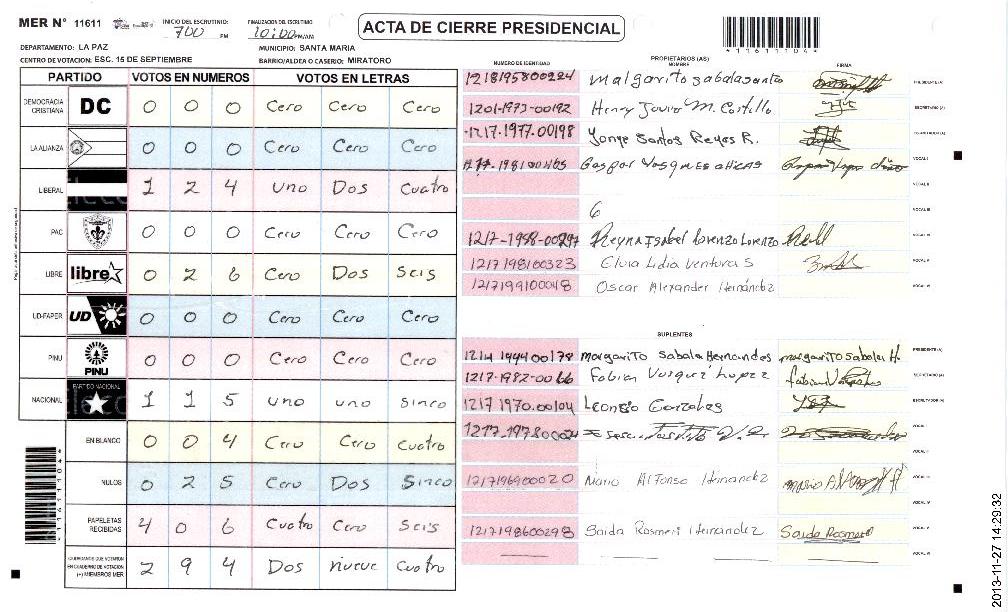 MER N° 11611
INICIO DEL ESCRUTINIO: 700 PM
FINALIZACION DEL ESCRUTINIO 10:00 PM/AM
ACTA DE CIERRE PRESIDENCIAL
DEPARTAMENTO: LA PAZ
MUNICIPIO: SANTA MARIA
CENTRO DE VOTACION: ESC. 15 DE SEPTIEMBRE
BARRIO/ALDEA O CASERIO: MIRATORO
PARTIDO VOTOS EN NUMEROS VOTOS EN LETRAS
DEMOCRACIA CRISTIANA DC 0 0 0 Cero Cero Cero
LA ALIANZA 0 0 0 Cero Cero Cero
LIBERAL 1 2 4 uno Dos Cuatro
PAC 0 0 0 Cero Cero Cero
LIBRE libre 0 2 6 Cero Dos Seis
UD-FAPER UD 0 0 0 Cero Cero Cero
PINU PINU 0 0 0 Cero Cero Cero
NACIONAL PARTIDO NACIONAL 1 1 5 uno uno Sinco
EN BLANCO 0 0 4 Cero Cero Cuatro
NULOS 0 2 5 Cero Dos Sinco
PAPELETAS RECIBIDAS 4 0 6 Cuatro Cero Seis
CIUDADANOS QUE VOTARON EN CUADERNO DE VOTACION (+) MIEMBROS MER 2 9 4 Dos nueve Cuatro
*11611104*
PROPIETARIOS (AS)
NUMERO DE IDENTIDAD NOMBRE FIRMA
1218195800224 malgarito sabala santo PRESIDENTE (A)
1201-1973-00192 Henry Javier M. Castillo SECRETARIO (A)
1217.1977.00198 Yorge Santos Reyes R. ESCRUTADOR (A)
Gaspar Vasques VOCAL I
VOCAL II
6 VOCAL III
1217-1958-00297 Reyna Isabel Lorenzo Lorenzo VOCAL IV
1217198100323 Elvia Lidia Ventura S VOCAL V
1217199100048 Oscar Alexander Hernández VOCAL VI
SUPLENTES
1214 1944 00178 Margarito Sabala Hernandes margarito Sabala H. PRESIDENTE (A)
1217-1982-00166 Fabian Vasquez Lopez SECRETARIO (A)
1217 1970.00104 Leoncio Gonzales ESCRUTADOR (A)
VOCAL I
VOCAL II
1217196900020 Mario Alfonso Hernandez VOCAL III
VOCAL IV
1217198600298 Saida Rosmeri Hernandez Saida Rosmeri VOCAL V
VOCAL VI
2013-11-27 14:29:32